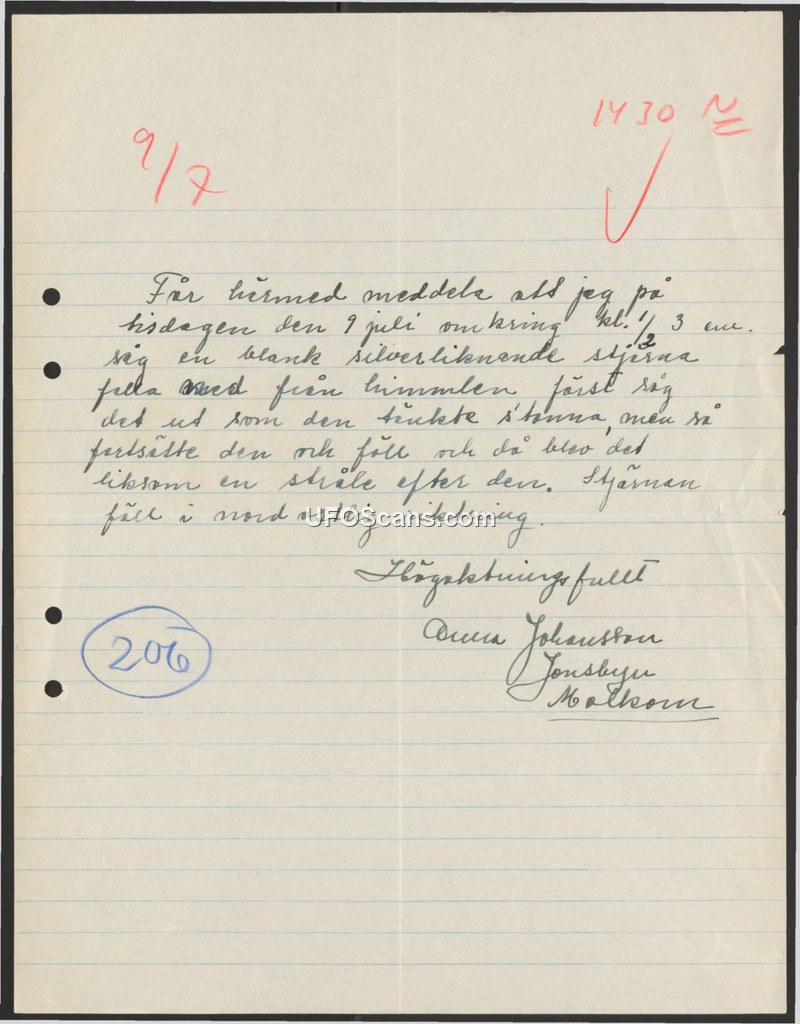 1430 N
9/7
Får härmed meddela att jag på
tisdagen den 9 juli omkring kl. 1/2 3 em.
såg en blank silverliknande stjärna
falla ned från himmlen först såg
det ut som den tänkte stanna, men så
fortsätte den och föll och då blev det
liksom en stråle efter den. Stjärnan
föll i nord riktning.
UFOScans.com
Högaktningsfullt
Anna Johansson
Jonsbyn
Molkom
206